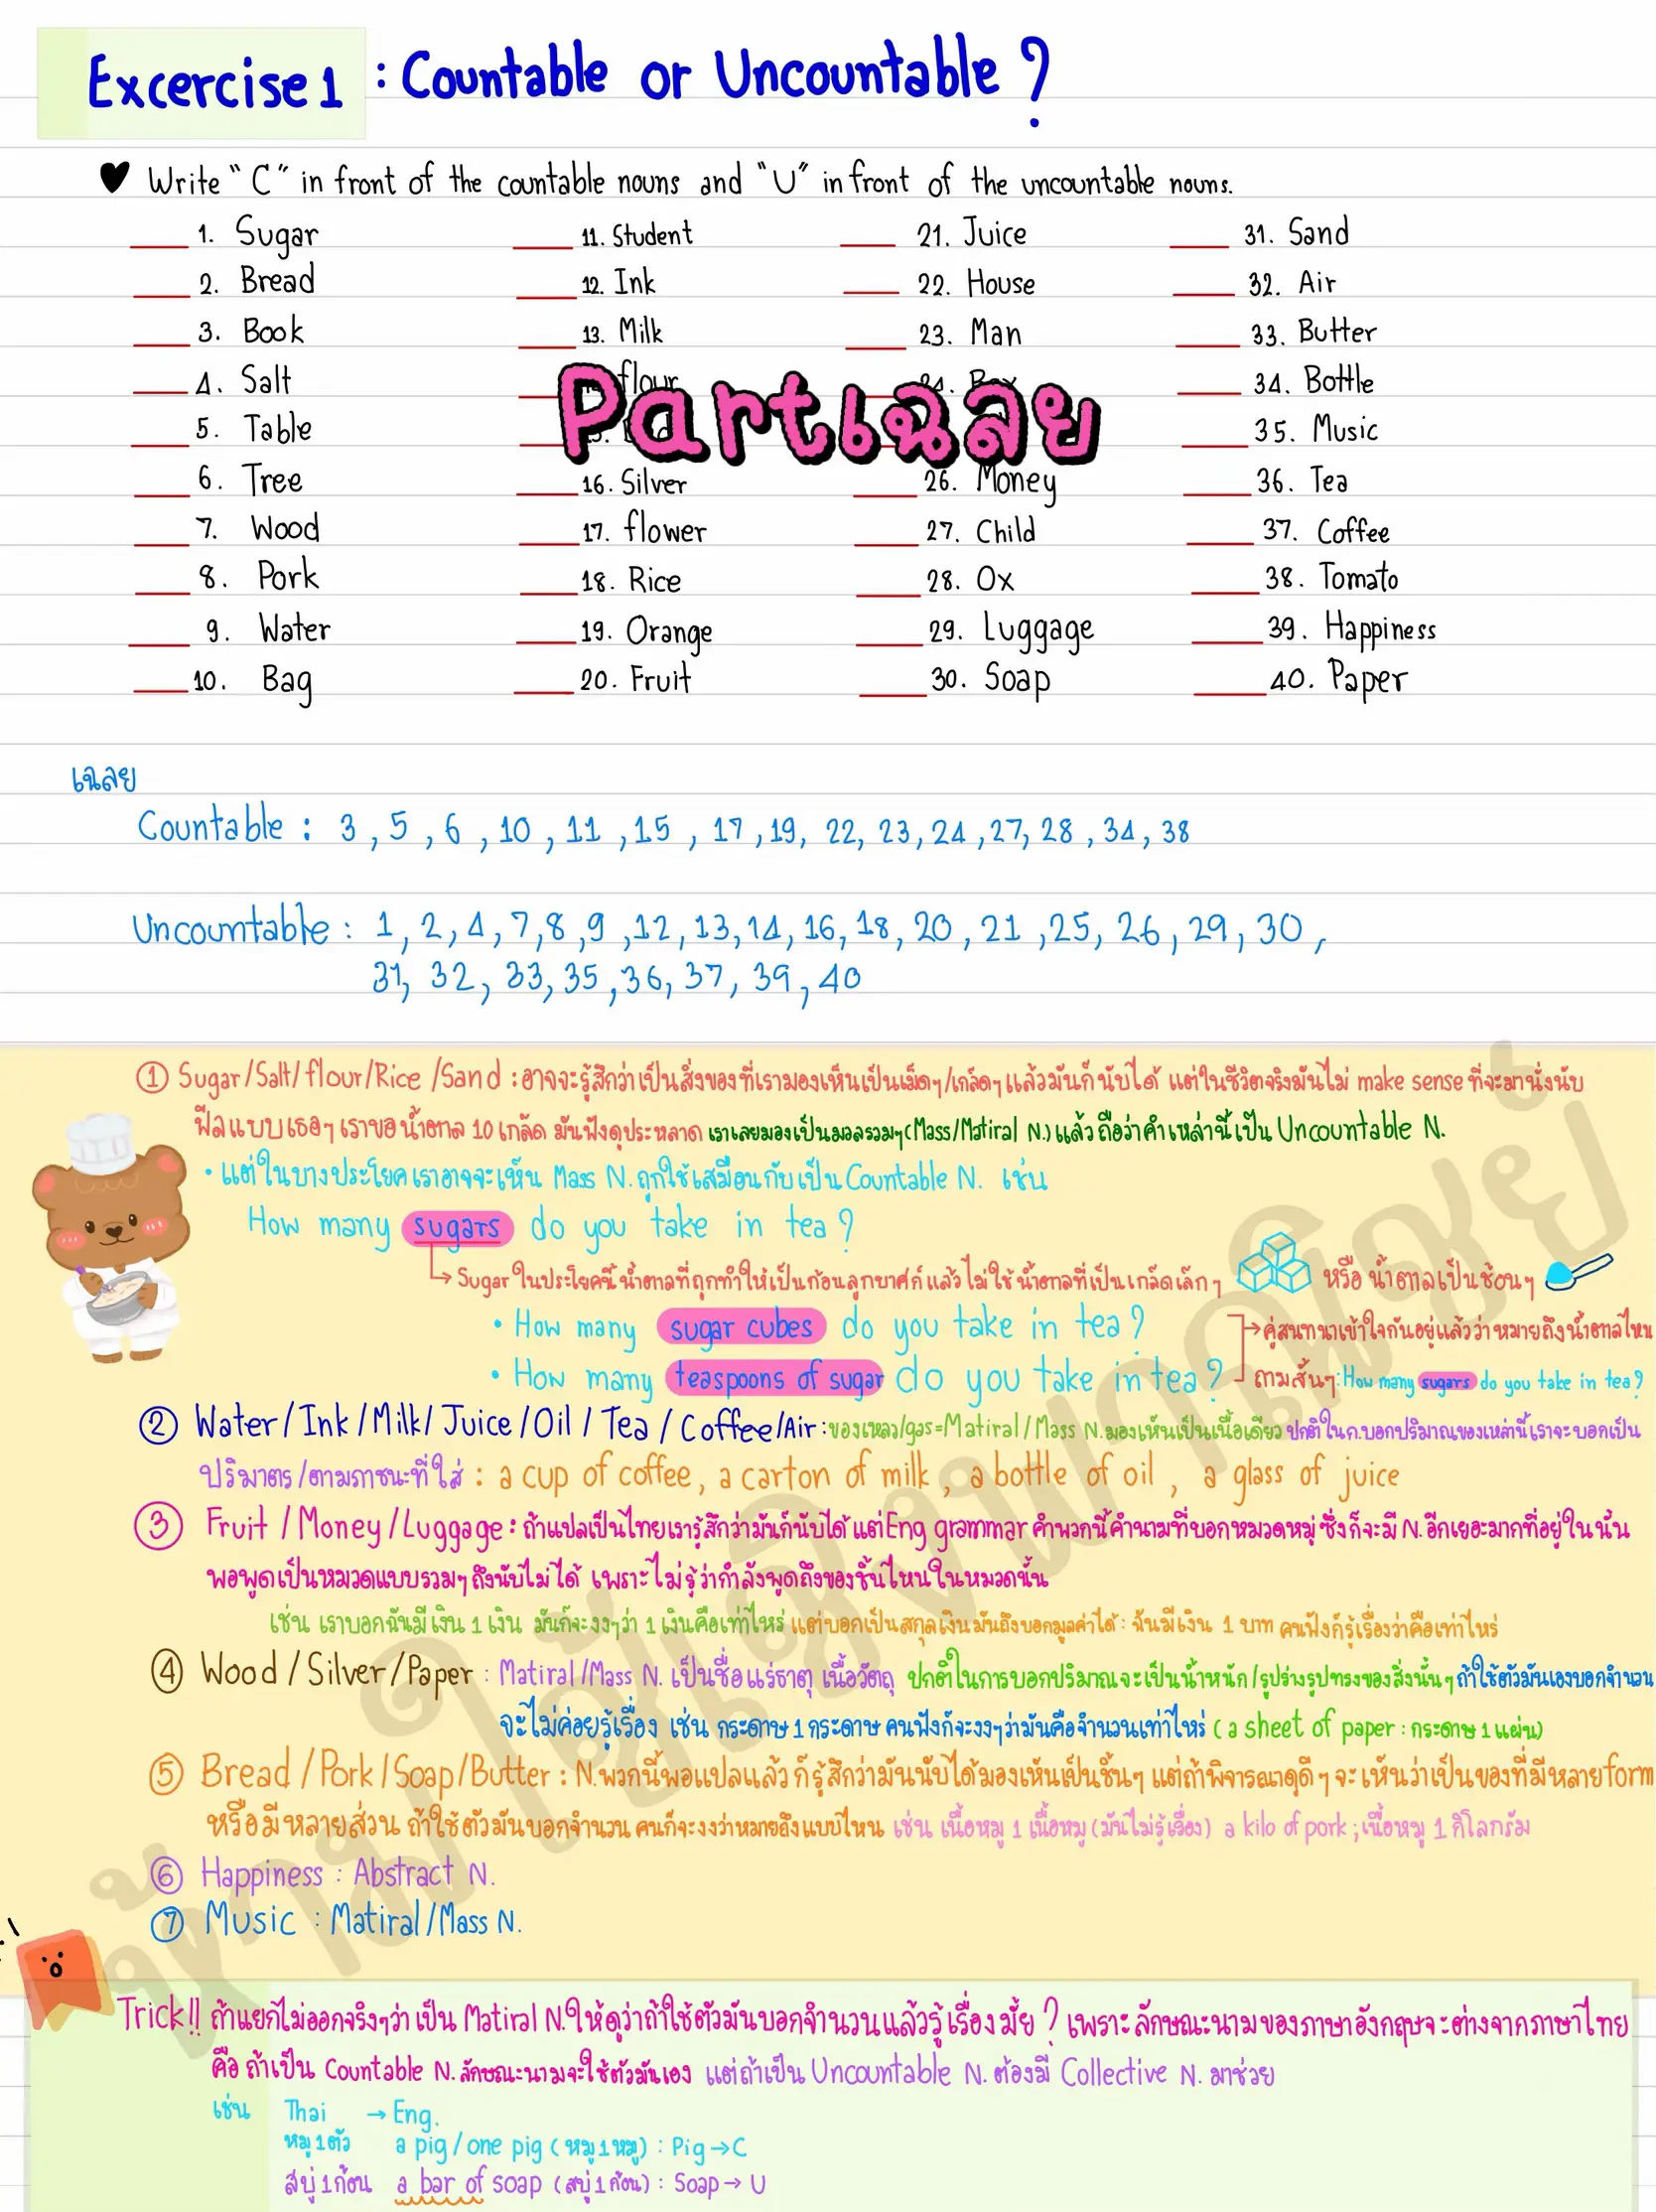 Excercise 1 : Countable or Uncountable ?
♥ Write "C" in front of the countable nouns and "U" in front of the uncountable nouns.
___ 1. Sugar ___ 11. Student ___ 21. Juice ___ 31. Sand
___ 2. Bread ___ 12. Ink ___ 22. House ___ 32. Air
___ 3. Book ___ 13. Milk ___ 23. Man ___ 33. Butter
___ 4. Salt ___ flour ___ 34. Bottle
Partเฉลย
___ 5. Table ___ 35. Music
___ 6. Tree ___ 16. Silver ___ 26. Money ___ 36. Tea
___ 7. Wood ___ 17. flower ___ 27. Child ___ 37. Coffee
___ 8. Pork ___ 18. Rice ___ 28. Ox ___ 38. Tomato
___ 9. Water ___ 19. Orange ___ 29. Luggage ___ 39. Happiness
___ 10. Bag ___ 20. Fruit ___ 30. Soap ___ 40. Paper
เฉลย
Countable : 3 , 5 , 6 , 10 , 11 , 15 , 17 , 19, 22, 23, 24 , 27, 28 , 34 , 38
Uncountable : 1 , 2, 4 , 7, 8 , 9 , 12, 13, 14 , 16, 18, 20 , 21 , 25, 26 , 29 , 30 ,
31, 32, 33, 35 , 36, 37, 39 , 40
① Sugar/Salt/flour/Rice /Sand : อาจจะรู้สึกว่าเป็นสิ่งของที่เรามองเห็นเป็นเม็ดๆ/เกล็ดๆ แล้วมันก็นับได้ แต่ในชีวิตจริงมันไม่ make sense ที่จะมานั่งนับ
ฟีลแบบเธอๆ เราขอน้ำตาล 10 เกล็ด มันฟังดูประหลาด เราเลยมองเป็นมวลรวมๆ(Mass/Matiral N.) แล้วถือว่าคำเหล่านี้เป็น Uncountable N.
• แต่ในบางประโยคเราอาจจะเห็น Mass N. ถูกใช้เสมือนกับเป็น Countable N. เช่น
How many sugars do you take in tea ?
Sugar ในประโยคนี้ น้ำตาลที่ถูกทำให้เป็นก้อนลูกบาศก์แล้ว ไม่ใช่น้ำตาลที่เป็นเกล็ดเล็กๆ หรือ น้ำตาลเป็นช้อนๆ
• How many sugar cubes do you take in tea ? คู่สนทนาเข้าใจกันอยู่แล้วว่าหมายถึงน้ำตาลไหน
• How many teaspoons of sugar do you take in tea ? ถามสั้นๆ: How many sugars do you take in tea ?
② Water / Ink / Milk / Juice / Oil / Tea / Coffee/Air : ของเหลว/gas=Matiral / Mass N. มองเห็นเป็นเนื้อเดียว ปกติในก.บอกปริมาณของเหล่านี้เราจะบอกเป็น
ปริมาตร /ตามภาชนะที่ใส่ : a cup of coffee, a carton of milk, a bottle of oil , a glass of juice
③ Fruit / Money / Luggage : ถ้าแปลเป็นไทยเรารู้สึกว่ามันก็นับได้ แต่ Eng grammar คำพวกนี้คำนามที่บอกหมวดหมู่ ซึ่งก็จะมี N. อีกเยอะมากที่อยู่ในนั้น
พอพูดเป็นหมวดแบบรวมๆ ถึงนับไม่ได้ เพราะไม่รู้ว่ากำลังพูดถึงของชิ้นไหนในหมวดนั้น
เช่น เราบอกฉันมีเงิน 1 เงิน มันก็จะงงๆว่า 1 เงินคือเท่าไหร่ แต่บอกเป็นสกุลเงินมันถึงบอกมูลค่าได้ : ฉันมีเงิน 1 บาท คนฟังก็รู้เรื่องว่าคือเท่าไหร่
④ Wood / Silver / Paper : Matiral /Mass N. เป็นชื่อแร่ธาตุ เนื้อวัตถุ ปกติในการบอกปริมาณจะเป็นน้ำหนัก/รูปร่างรูปทรงของสิ่งนั้นๆ ถ้าใช้ตัวมันเองบอกจำนวน
จะไม่ค่อยรู้เรื่อง เช่น กระดาษ 1 กระดาษ คนฟังก็จะงงๆว่ามันคือจำนวนเท่าไหร่ ( a sheet of paper : กระดาษ 1 แผ่น)
⑤ Bread / Pork / Soap / Butter : N. พวกนี้พอแปลแล้วก็รู้สึกว่ามันนับได้มองเห็นเป็นชิ้นๆ แต่ถ้าพิจารณาดูดีๆ จะเห็นว่าเป็นของที่มีหลาย form
หรือมีหลายส่วน ถ้าใช้ตัวมันบอกจำนวน คนก็จะงงว่าหมายถึงแบบไหน เช่น เนื้อหมู 1 เนื้อหมู (มันไม่รู้เรื่อง) a kilo of pork ; เนื้อหมู 1 กิโลกรัม
⑥ Happiness : Abstract N.
⑦ Music : Matiral / Mass N.
ห้ามใช้เชิงพาณิชย์
Trick!! ถ้าแยกไม่ออกจริงๆว่า เป็น Matiral N. ให้ดูว่าถ้าใช้ตัวมันบอกจำนวนแล้วรู้เรื่องมั้ย ? เพราะลักษณะนามของภาษาอังกฤษจะต่างจากภาษาไทย
คือ ถ้าเป็น Countable N. ลักษณะนามจะใช้ตัวมันเอง แต่ถ้าเป็น Uncountable N. ต้องมี Collective N. มาช่วย
เช่น Thai → Eng.
หมู 1 ตัว a pig / one pig ( หมู 1 หมู) : Pig → C
สบู่ 1 ก้อน a bar of soap ( สบู่ 1 ก้อน) : Soap → U